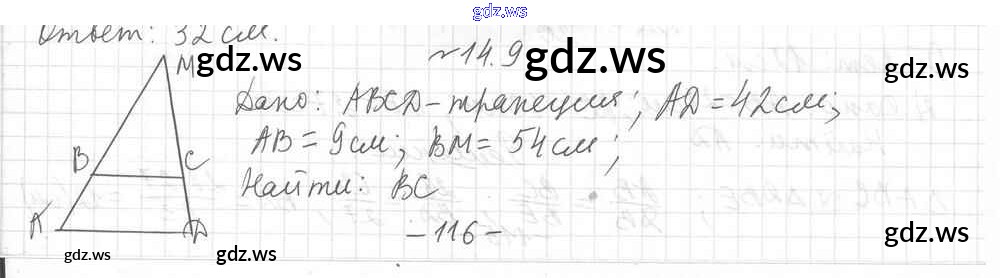 gdz.ws
Ответ: 32 см.
№14.9
gdz.ws gdz.ws gdz.ws
M
Дано: ABCD-трапеция; AD=42см;
AB=9см; BM=54см;
B C
Найти: BC
A D
-116-
gdz.ws gdz.ws gdz.ws gdz.ws